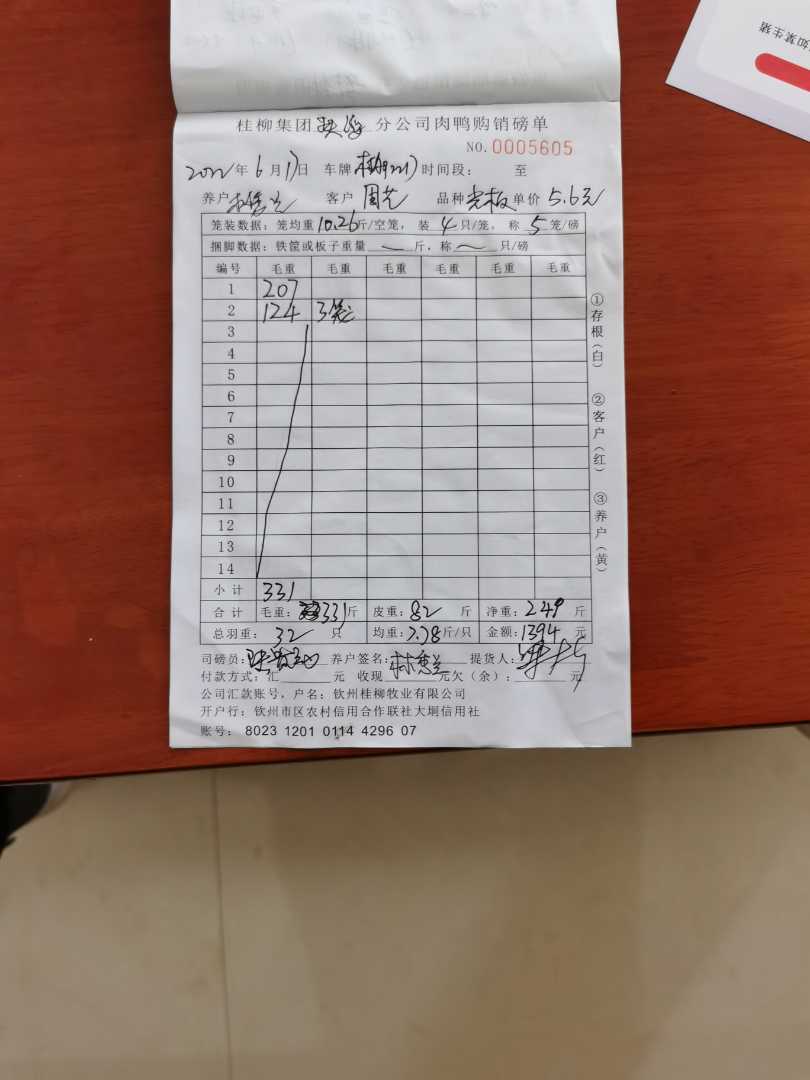 桂柳集团 钦州 分公司肉鸭购销磅单
NO. 0005605
2022年6月17日 车牌 时间段： 至
养户 客户 周艺 品种 光板 单价 5.6元
笼装数据：笼均重10.26斤/空笼，装4只/笼，称5笼/磅
捆脚数据：铁筐或板子重量 斤，称 只/磅
编号 毛重 毛重 毛重 毛重 毛重 毛重
1 207
2 124 3笼
3
4
5
6
7
8
9
10
11
12
13
14
小计 331
合计 毛重：331斤 皮重：82 斤 净重：249 斤
总羽重：32 只 均重：7.78斤/只 金额：1394 元
司磅员： 养户签名：林惠兰 提货人：
付款方式：汇 元 收现 元欠（余）： 元
公司汇款账号，户名：钦州桂柳牧业有限公司
开户行：钦州市区农村信用合作联社大垌信用社
账号：8023 1201 0114 4296 07
①存根（白） ②客户（红） ③养户（黄）